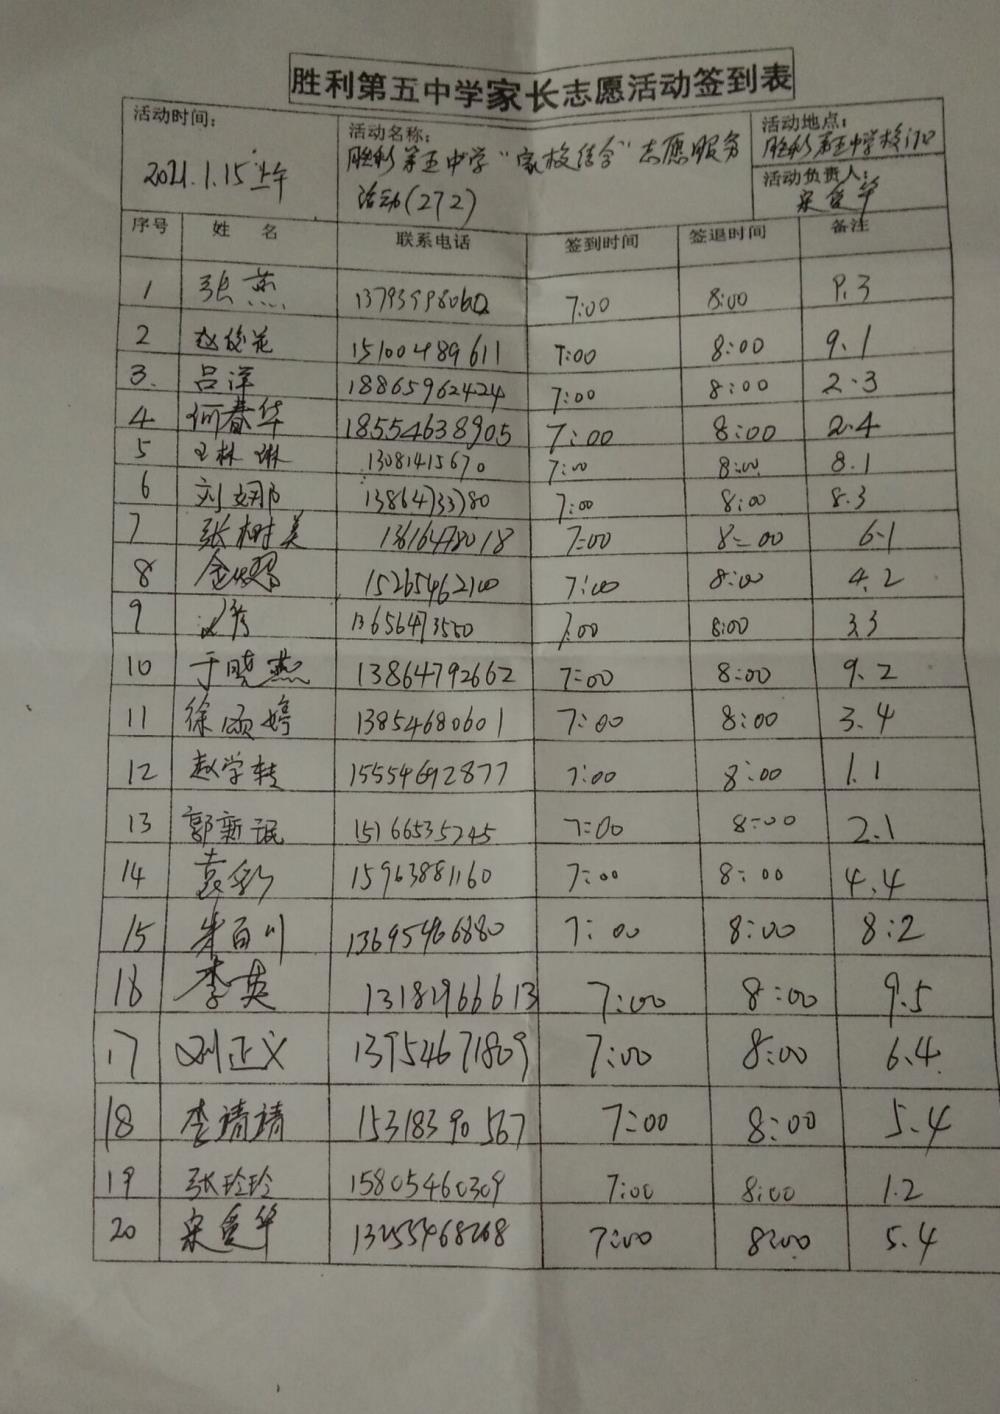 胜利第五中学家长志愿活动签到表
活动时间: 2021.1.15上午
活动名称: 胜利第五中学“家校结合”志愿服务
活动(272)
活动地点: 胜利第五中学校门口
活动负责人: 宋爱华
序号 姓名 联系电话 签到时间 签退时间 备注
1 张燕 7:00 8:00
2 15100489611 7:00 8:00 9.1
3. 吕洋 18865962424 7:00 8:00 2.3
4 何春华 18554638905 7:00 8:00 2.4
5 王林琳 13081415670 7:00 8:00 8.1
6 刘娜 13864733780 7:00 8:00 8.3
7 张树美 13616478018 7:00 8:00 6.1
8 15265462100 7:00 8:00 4.2
9 13656473550 7:00 8:00 3.3
10 于晓燕 13864792662 7:00 8:00 9.2
11 徐颂婷 13854680601 7:00 8:00 3.4
12 赵学转 15554692877 7:00 8:00 1.1
13 郭新 15166535245 7:00 8:00 2.1
14 袁彩 15963881160 7:00 8:00 4.4
15 朱百川 13695466880 7:00 8:00 8:2
16 李英 13181966613 7:00 8:00 9.5
17 刘正义 13954671809 7:00 8:00 6.4
18 李靖靖 15318390567 7:00 8:00 5.4
19 张玲玲 15805460309 7:00 8:00 1.2
20 宋爱华 13255468268 7:00 8:00 5.4